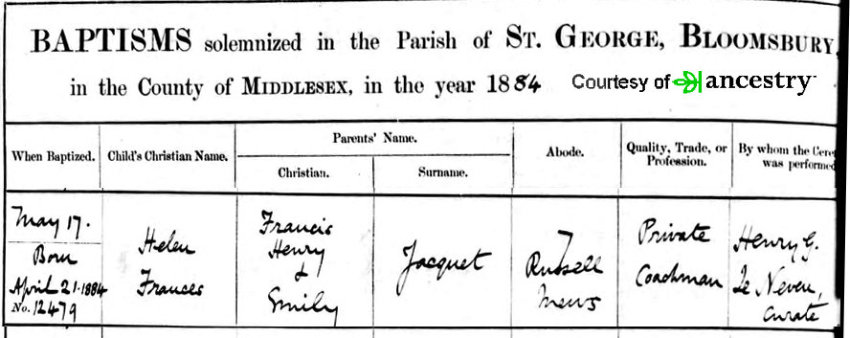 BAPTISMS solemnized in the Parish of ST. GEORGE, BLOOMSBURY,
in the County of MIDDLESEX, in the year 1884
Courtesy of ancestry
When Baptized.
Child's Christian Name.
Parents' Name.
Christian.
Surname.
Abode.
Quality, Trade, or
Profession.
By whom the Cere
was performed
May 17.
Born
April 21. 1884
No. 12479
Helen
Frances
Francis
Henry
&
Emily
Jacquet
7
Russell
Mews
Private
Coachman
Henry G.
Le Neveu,
Curate